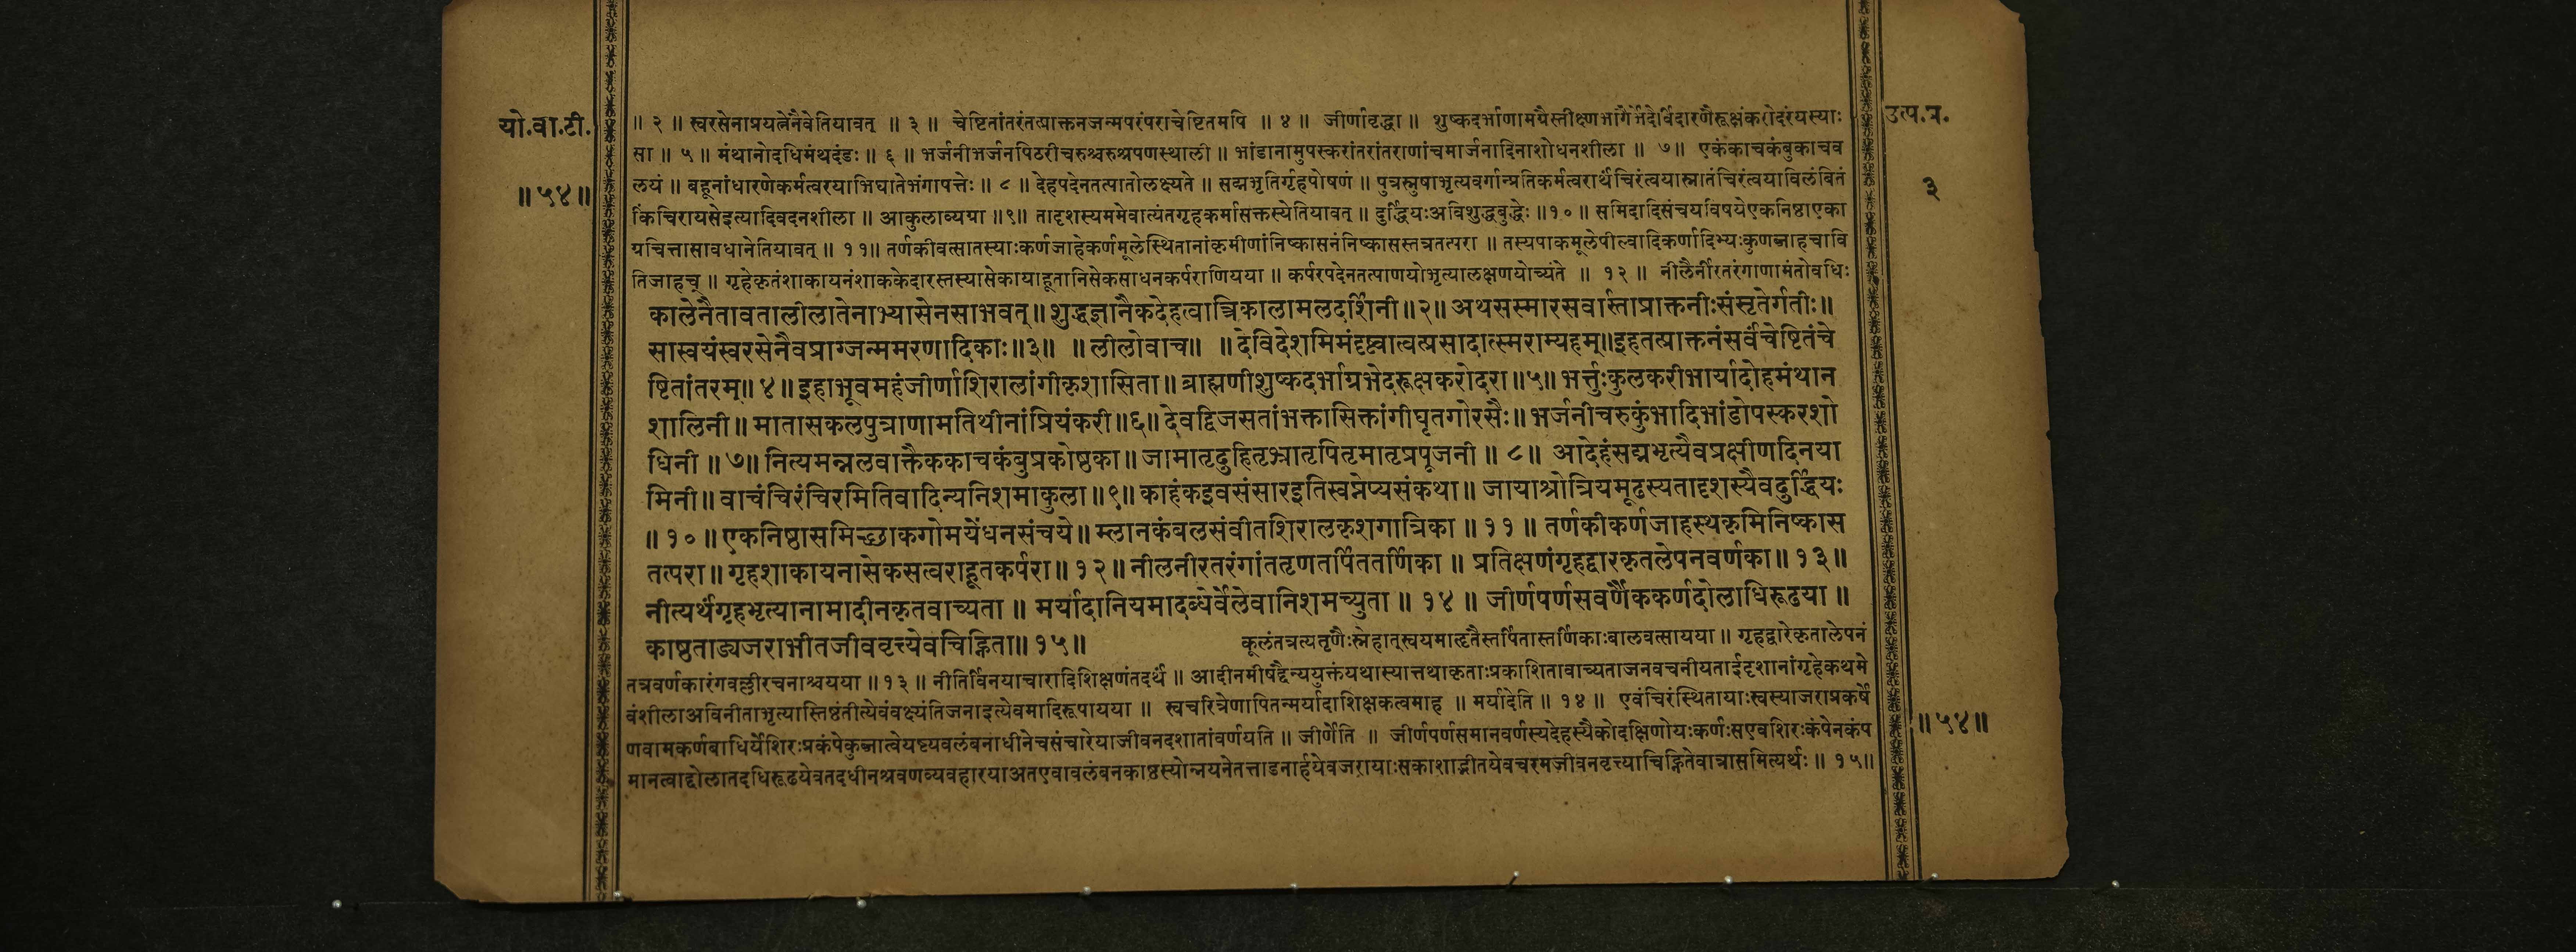 यो.वा.टी.
॥५४॥
॥ २ ॥ स्वरसेनाप्रयत्नेनैवेतियावत् ॥ ३ ॥ चेष्टितांतरंतत्प्राक्तनजन्मपरंपराचेष्टितमपि ॥ ४ ॥ जीर्णावृद्धा ॥ शुष्कदर्भाणामग्रैस्तीक्ष्णभागैर्भेदैर्विदारणैरूक्षंकरोदरंयस्याः
सा ॥ ५ ॥ मंथानोदधिमंथदंडः ॥ ६ ॥ भर्जनीभर्जनपिठरीचरुश्चरुश्रपणस्थाली ॥ भांडानामुपस्करांतरांतराणांचमार्जनादिनाशोधनशीला ॥ ७॥ एकंकाचकंबुकाचव
लयं ॥ बहूनांधारणेकर्मत्वरयाभिघातेभंगापत्तेः ॥ ८ ॥ देहपदेनतत्पातोलक्ष्यते ॥ सद्मभृतिर्गृहपोषणं ॥ पुत्रस्नुषाभृत्यवर्गान्प्रतिकर्मत्वरार्थंचिरंत्वयास्नातंचिरंत्वयाविलंबितं
किंचिरायसेइत्यादिवदनशीला ॥ आकुलाव्यग्रा ॥९॥ तादृशस्यममेवात्यंतगृहकर्मासक्तस्येतियावत् ॥ दुर्द्धियःअविशुद्धबुद्धेः ॥१०॥ समिदादिसंचयविषयेएकनिष्ठाएका
ग्रचित्तासावधानेतियावत् ॥ ११॥ तर्णकीवत्सातस्याःकर्णजाहेकर्णमूलेस्थितानांकृमीणांनिष्कासनंनिष्कासस्तत्रतत्परा ॥ तस्यपाकमूलेपील्वादिकर्णादिभ्यःकुणब्जाहचावि
तिजाहच् ॥ गृहेकृतंशाकायनंशाककेदारस्तस्यासेकायाहूतानिसेकसाधनकर्पराणियया ॥ कर्परपदेनतत्पाणयोभृत्यालक्षणयोच्यंते ॥ १२ ॥ नीलैर्नीरतरंगाणामंतोवधिः
कालेनैतावतालीलातेनाभ्यासेनसाभवत्॥शुद्धज्ञानैकदेहत्वान्त्रिकालामलदर्शिनी॥२॥ अथसस्मारसर्वास्ताप्राक्तनीःसंसृतेर्गतीः॥
सास्वयंस्वरसेनैवप्राग्जन्ममरणादिकाः॥३॥ ॥लीलोवाच॥ ॥देविदेशमिमंदृष्ट्वात्वत्प्रसादात्स्मराम्यहम्॥इहतत्प्राक्तनंसर्वंचेष्टितंचे
ष्टितांतरम्॥ ४॥ इहाभूवमहंजीर्णाशिरालांगीकृशासिता॥ ब्राह्मणीशुष्कदर्भाग्रभेदरूक्षकरोदरा॥५॥ भर्त्तुःकुलकरीभार्यादोहमंथान
शालिनी॥ मातासकलपुत्राणामतिथीनांप्रियंकरी॥६॥ देवद्विजसतांभक्तासिक्तांगीघृतगोरसैः॥ भर्जनीचरुकुंभादिभांडोपस्करशो
धिनी ॥ ७॥ नित्यमन्नलवाक्तैककाचकंबुप्रकोष्ठका॥ जामातृदुहितृभ्रातृपितृमातृप्रपूजनी ॥ ८॥ आदेहंसद्मभृत्यैवप्रक्षीणदिनया
मिनी॥ वाचंचिरंचिरमितिवादिन्यनिशमाकुला॥९॥ काहंकइवसंसारइतिस्वप्नेप्यसंकथा॥ जायाश्रोत्रियमूढस्यतादृशस्यैवदुर्द्धियः
॥१०॥ एकनिष्ठासमिच्छाकगोमयेंधनसंचये॥ म्लानकंबलसंवीतशिरालकृशगात्रिका ॥ ११ ॥ तर्णकीकर्णजाहस्थकृमिनिष्कास
तत्परा॥ गृहशाकायनासेकसत्वराहूतकर्परा॥ १२॥ नीलनीरतरंगांततृणतर्पिततर्णिका ॥ प्रतिक्षणंगृहद्वारकृतलेपनवर्णका॥ १३॥
नीत्यर्थंगृहभृत्यानामादीनकृतवाच्यता ॥ मर्यादानियमादब्धेर्वेलेवानिशमच्युता ॥ १४ ॥ जीर्णपर्णसवर्णैककर्णदोलाधिरूढया ॥
काष्ठताड्यजराभीतजीववृत्त्येवचिह्निता॥ १५॥
कूलंतत्रत्यतृणैःस्नेहात्स्वयमाहृतैस्तर्पितास्तर्णिकाःबालवत्सायया ॥ गृहद्वारेकृतालेपनं
तत्रवर्णकारंगवल्लीरचनाश्चयया ॥१३ ॥ नीतिर्विनयाचारादिशिक्षणंतदर्थं ॥ आदीनमीषद्दैन्ययुक्तंयथास्यात्तथाकृताःप्रकाशितावाच्यताजनवचनीयताईदृशानांगृहेकथमे
वंशीलाअविनीताभृत्यास्तिष्ठंतीत्येवंवक्ष्यंतिजनाइत्येवमादिरूपायया ॥ स्वचरित्रेणापितन्मर्यादाशिक्षकत्वमाह ॥ मर्यादेति ॥ १४ ॥ एवंचिरंस्थितायाःस्वस्याजराप्रकर्षे
णवामकर्णबाधिर्येशिरःप्रकंपेकुब्जात्वेयष्ट्यवलंबनाधीनेचसंचारेयाजीवनदशातांवर्णयति ॥ जीर्णेति ॥ जीर्णपर्णसमानवर्णस्यदेहस्यैकोदक्षिणोयःकर्णःसएवशिरःकंपेनकंप
मानत्वाद्दोलातदधिरूढयेवतदधीनश्रवणव्यवहारयाअतएवावलंबनकाष्ठस्योन्नयनेतत्ताडनार्हयेवजरायाःसकाशाद्भीतयेवचरमजीवनवृत्त्याचिह्नितेवात्रासमित्यर्थः ॥ १५॥
उत्प.प्र.
३
॥५४॥